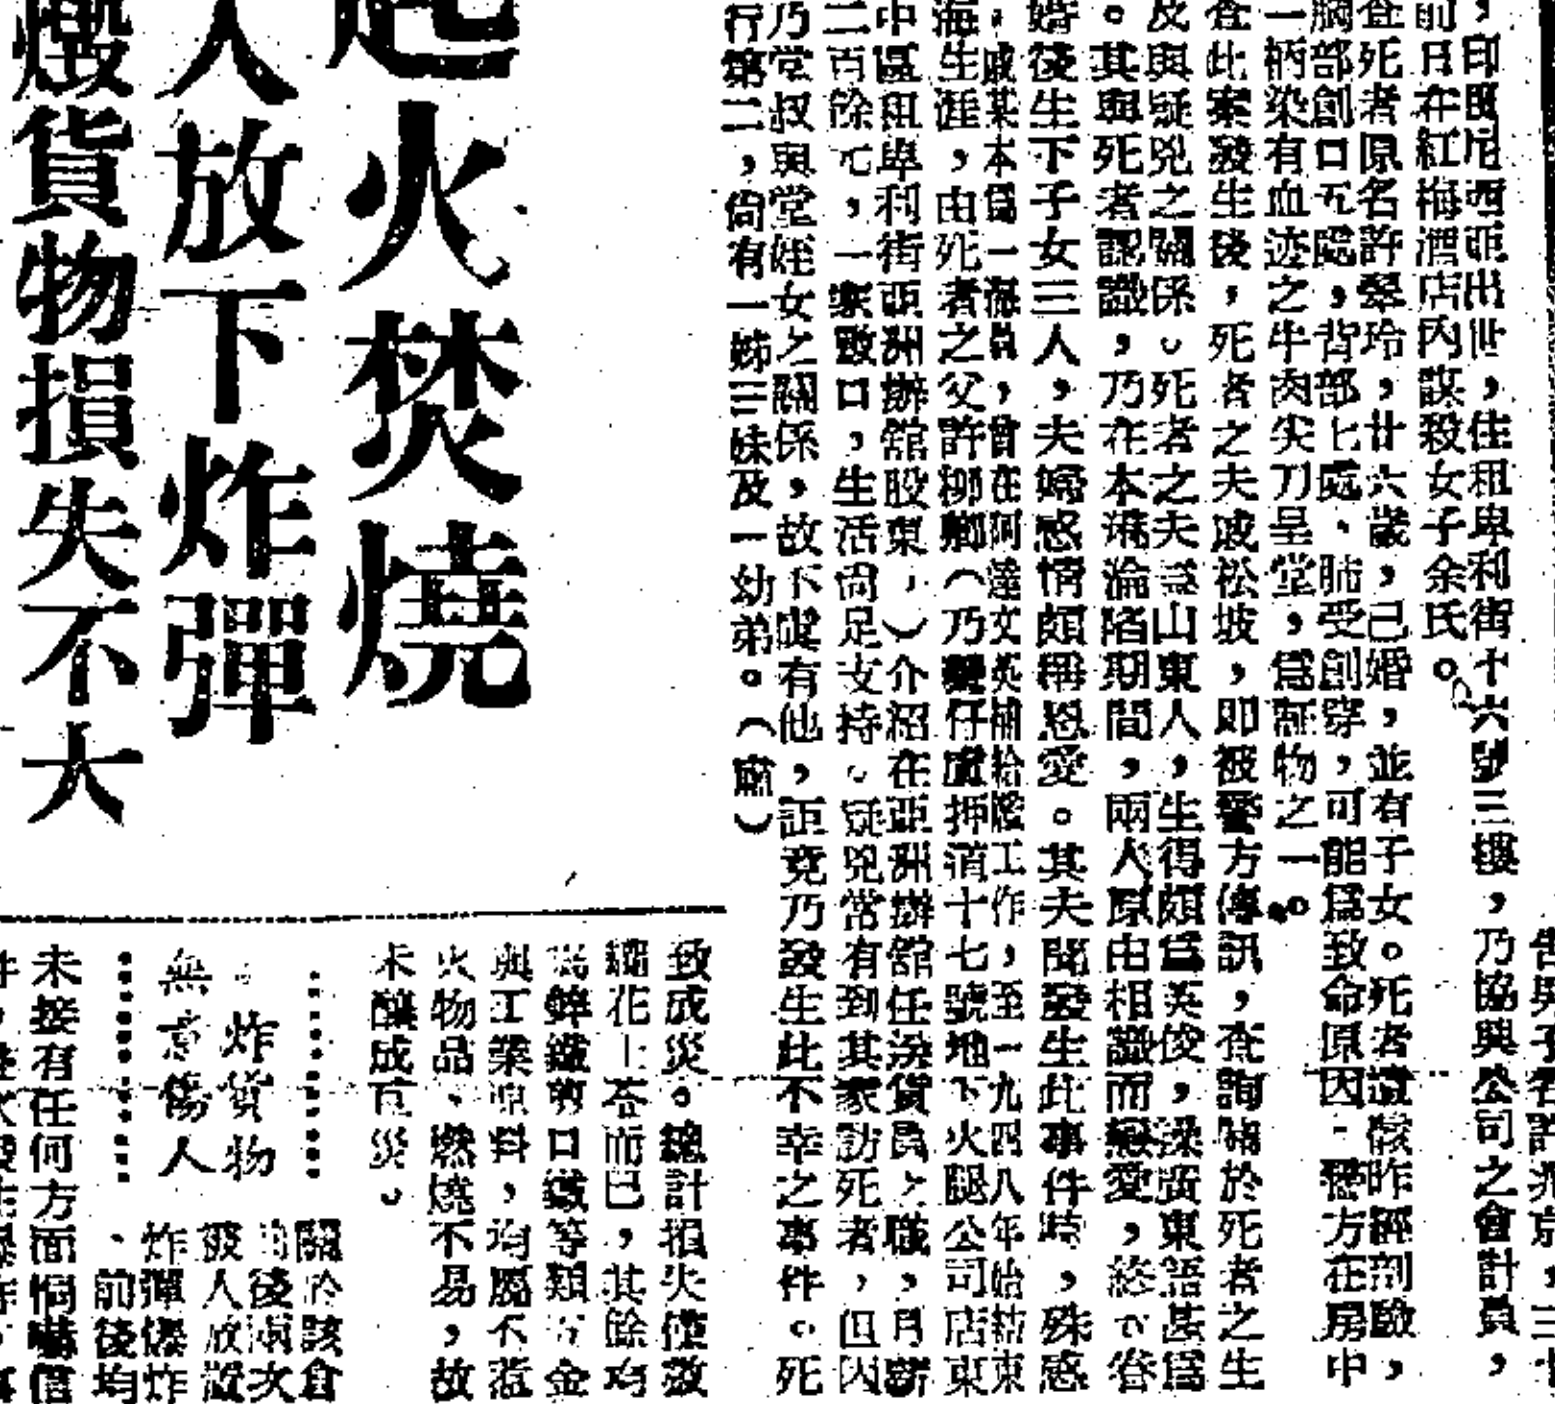 ，印度尼西亞出世，住租卑利街十六號三樓，乃協興公司之會計員，
前日在紅梅酒店內謀殺女子余氏。
查死者原名許翠玲，廿六歲，已婚，並有子女。死者遺骸昨經剖驗，
胸部創口五處，背部七處、肺受創穿，可能爲致命原因。警方在房中
一柄染有血迹之牛肉尖刀呈堂，爲証物之一。
查此案發生後，死者之夫戚松坡，即被警方傳訊，查詢關於死者之生
及與疑兇之關係。死者之夫爲山東人，生得頗爲英俊，操廣東語甚爲
。其與死者認識，乃在本港淪陷期間，兩人原由相識而戀愛，終
婚後生下子女三人，夫婦感情頗稱恩愛。其夫聞發生此事件時，殊感
，戚某本爲一海員，曾在阿達文英補給艦工作，至一九四八年始結束
海生涯，由死者之父許（乃灣仔盧押道十七號地下火腿公司店東
中區租卑利街亞洲辦館股東，）介紹在亞洲辦館任送貨員之職，月薪
二百餘元，一家數口，生活尚足支持。疑兇常有到其家訪死者，但因
乃堂叔與堂姪女之關係，故不疑有他，詎竟乃發生此不幸之事件。死
行第二，尙有一姊三妹及一幼弟。
起火焚燒
人放下炸彈
燬貨物損失不大
致成災。總計損失僅數
花上荅而已，其餘均
鋅鐵剪口鐵等類五金
與工業原料，均屬不惹
火物品、燃燒不易，故
未釀成巨災。
炸貨物
無意傷人
關於該倉
前後兩次
被人放置
炸彈爆炸
、前後均
未接有任何方面恫嚇信